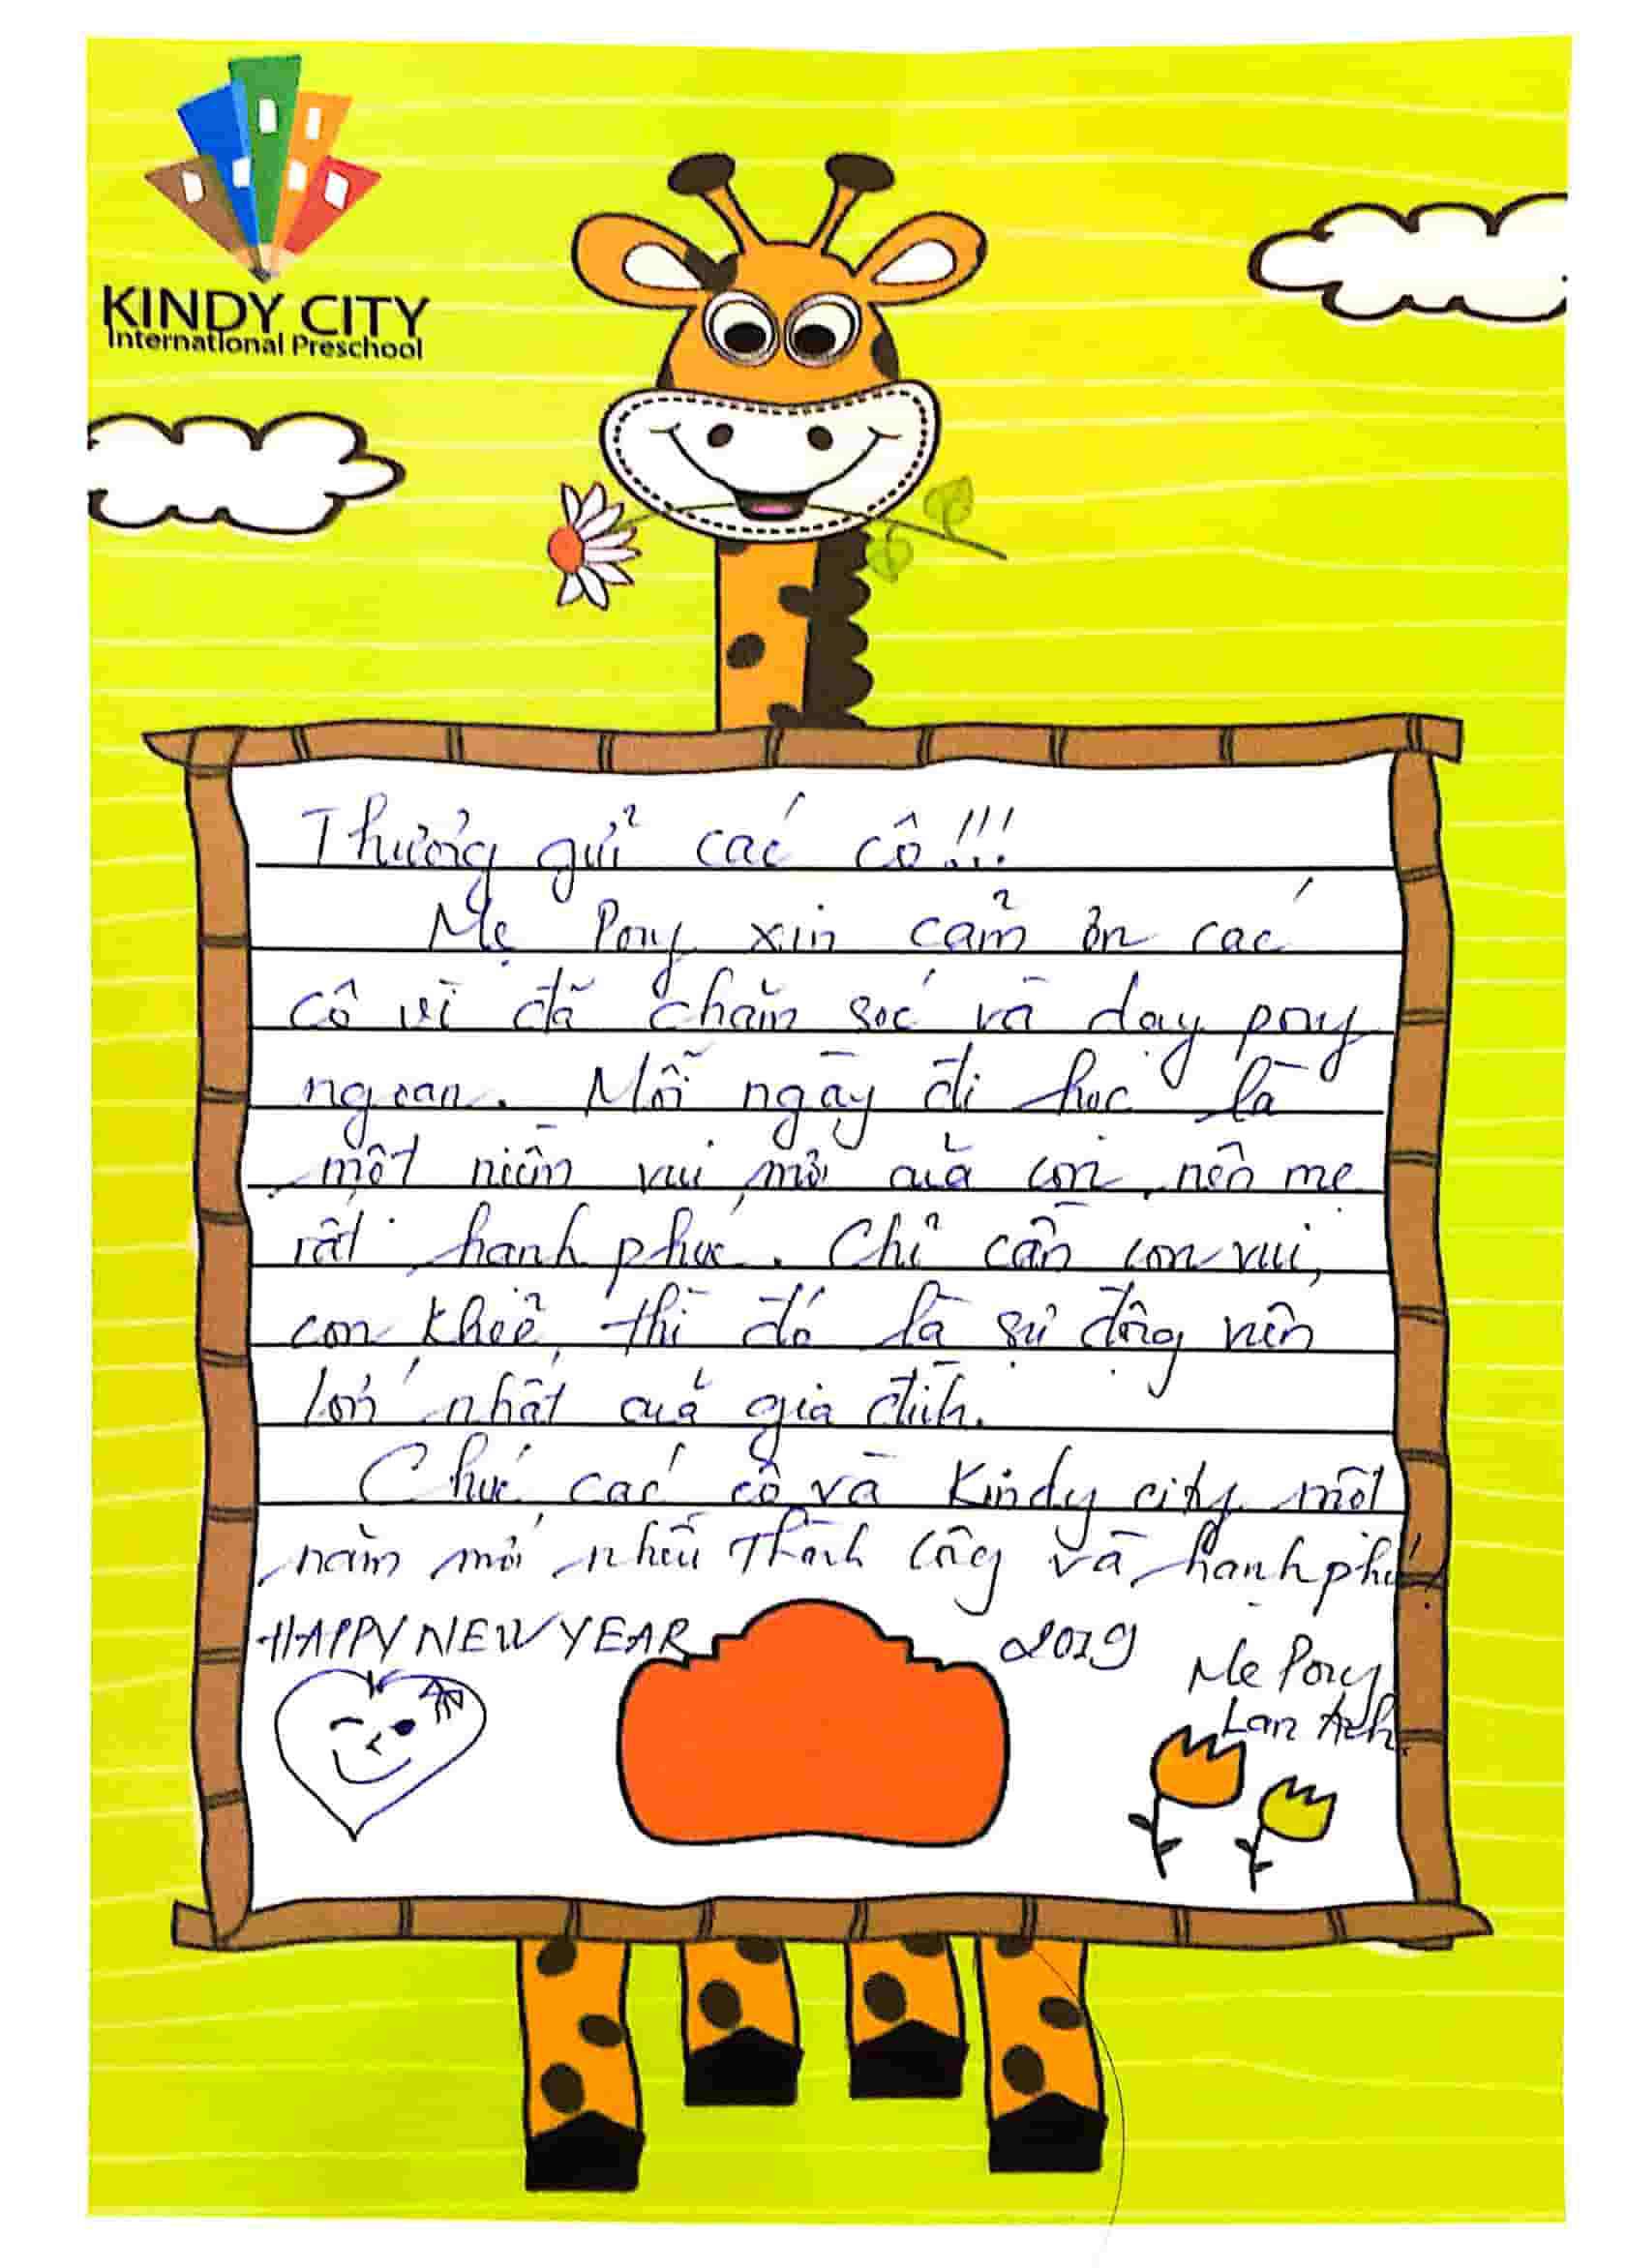 KINDY CITY
International Preschool
Thương gửi các cô!!!
Mẹ Pony xin cảm ơn các
cô vì đã chăm sóc và dạy pony
ngoan. Mỗi ngày đi học là
một niềm vui mới của con, nên mẹ
rất hạnh phúc. Chỉ cần con vui,
con khoẻ thì đó là sự động viên
lớn nhất của gia đình.
Chúc các cô và Kindy city một
năm mới nhiều Thành công và hạnh phúc!
HAPPY NEW YEAR 2019
Mẹ Pony
Lan Anh.